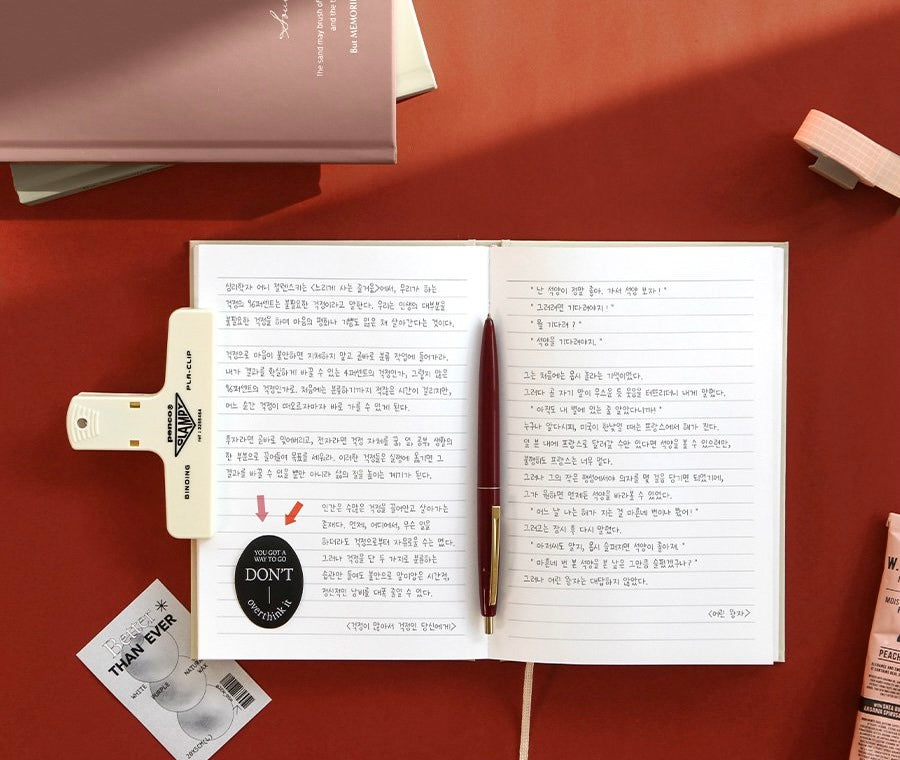 The sand may brush of
and the t
But MEMORIE
심리학자 어니 젤린스키는 <느리게 사는 즐거움>에서, 우리가 하는
걱정의 96퍼센트는 불필요한 걱정이라고 말한다. 우리는 인생의 대부분을
불필요한 걱정을 하며 마음의 평화나 기쁨도 잃은 채 살아간다는 것이다.
걱정으로 마음이 불안하면 지체하지 말고 곧바로 분류 작업에 들어가라.
내가 결과를 확실하게 바꿀 수 있는 4퍼센트의 걱정인가, 그렇지 않은
96퍼센트의 걱정인가로. 처음에는 분류하기까지 적잖은 시간이 걸리지만,
어느 순간 걱정이 떠오르자마자 바로 가를 수 있게 된다.
후자라면 곧바로 잊어버리고, 전자라면 걱정 자체를 꿈, 일, 공부, 생활의
한 부분으로 끌어들여 목표를 세워라. 이러한 걱정들은 실천에 옮기면 그
결과를 바꿀 수 있을 뿐만 아니라 삶의 질을 높이는 계기가 된다.
인간은 수많은 걱정을 끌어안고 살아가는
존재다. 언제, 어디에서, 무슨 일을
하더라도 걱정으로부터 자유로울 수는 없다.
그러나 걱정을 단 두 가지로 분류하는
습관만 들여도 불안으로 말미암은 시간적,
정신적인 낭비를 대폭 줄일 수 있다.
<걱정이 많아서 걱정인 당신에게>
YOU GOT A
WAY TO GO
DON'T
overthink it
" 난 석양이 정말 좋아. 가서 석양 보자! "
" 그러려면 기다려야지! "
" 뭘 기다려? "
" 석양을 기다려야지. "
그는 처음에는 몹시 놀라는 기색이었다.
그러다 곧 자기 말이 우스운 듯 웃음을 터뜨리더니 내게 말했다.
" 아직도 내 별에 있는 줄 알았다니까! "
누구나 알다시피, 미국이 한낮일 때는 프랑스에서 해가 진다.
일 분 내에 프랑스로 달려갈 수만 있다면 석양을 볼 수 있으련만,
불행히도 프랑스는 너무 멀다.
그러나 그의 작은 행성에서야 의자를 몇 걸음 당기면 되었기에,
그가 원하면 언제든 석양을 바라볼 수 있었다.
" 어느 날 나는 해가 지는 걸 마흔네 번이나 봤어! "
그러고는 잠시 후 다시 말했다.
" 아저씨도 알지, 몹시 슬퍼지면 석양이 좋아져. "
" 마흔네 번 본 석양을 본 날은 그만큼 슬펐겠구나? "
그러나 어린 왕자는 대답하지 않았다.
<어린 왕자>
penco®
CLAMPY
ref : 3285464
PLA-CLIP
BINDING
Better
THAN EVER
WHITE
PURPLE
NATURAL
WAX
W.
MOIS
PEACH
WITH SHEA BU